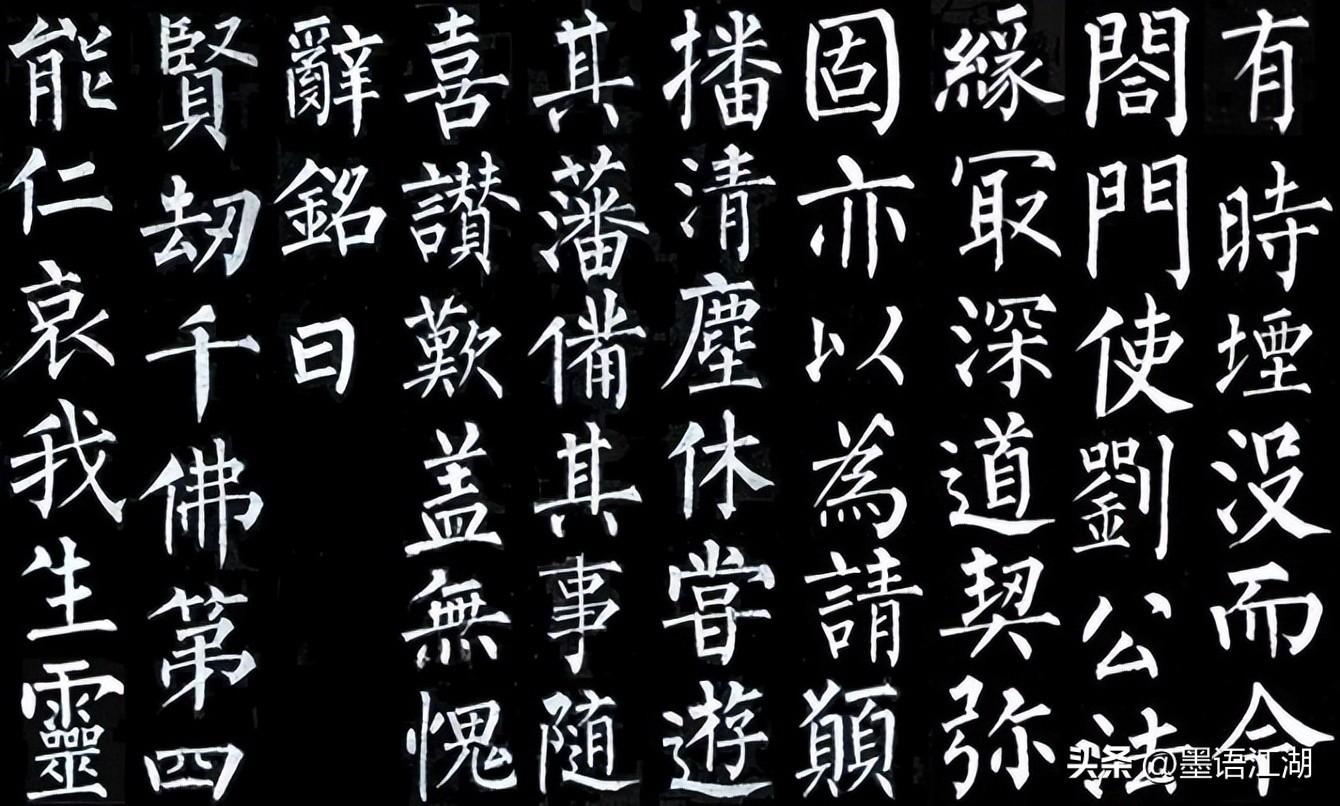 有時堙没而今
閤門使劉公法
緣冣深道契弥
固亦以為請願
播清塵休甞遊
其藩備其事随
喜讃歎盖無愧
辭銘曰
賢劫千佛第四
能仁哀我生靈
头条@墨语江湖